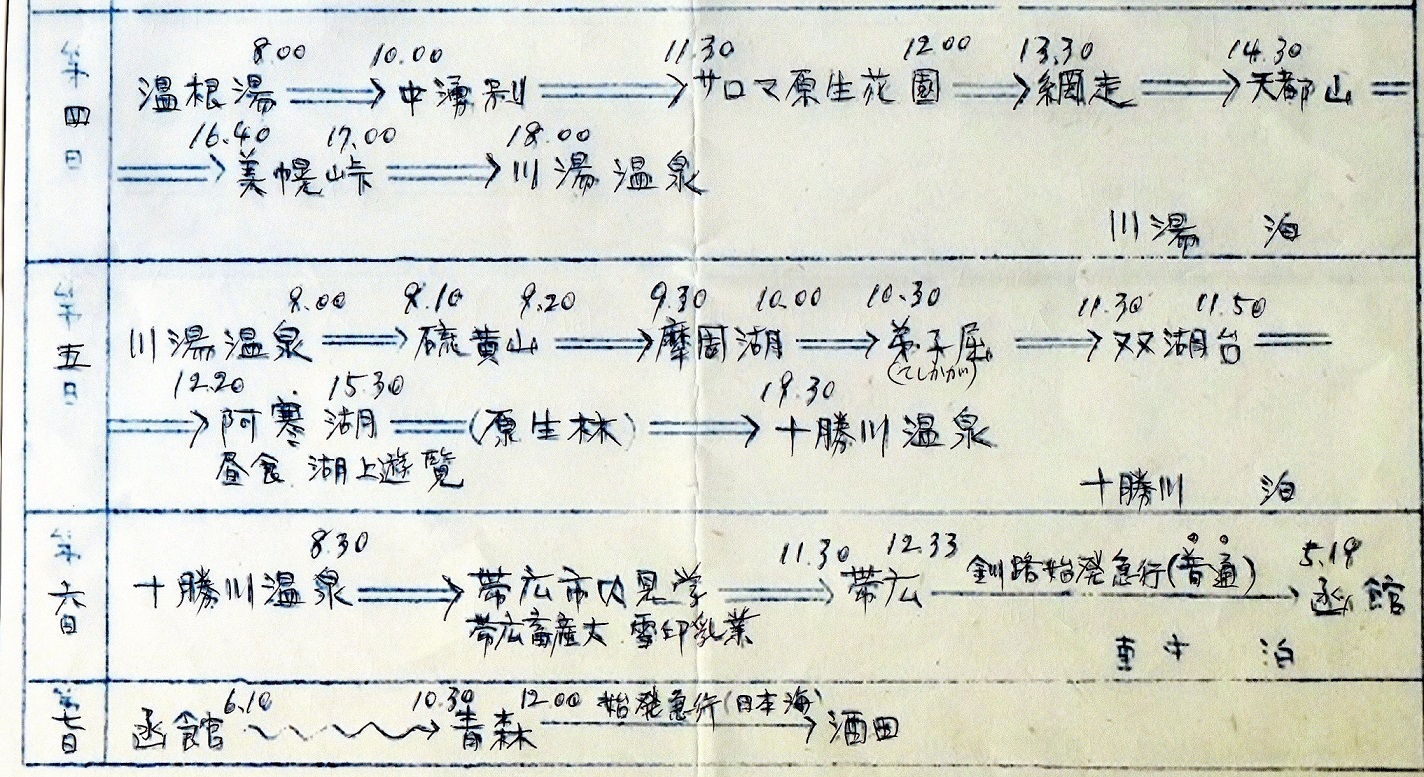 第四日
8.00 10.00 11.30 12.00 13.30 14.30
温根湯 ⇒ 中湧別 ⇒ サロマ原生花園 ⇒ 網走 ⇒ 天都山 =
16.40 17.00 18.00
⇒ 美幌峠 ⇒ 川湯温泉
川湯 泊
第五日
8.00 8.10 9.20 9.30 10.00 10.30 11.30 11.50
川湯温泉 ⇒ 硫黄山 ⇒ 摩周湖 ⇒ 弟子屈 ⇒ 双湖台 =
(てしかが)
12.20 15.30 19.30
⇒ 阿寒湖 =(原生林) ⇒ 十勝川温泉
昼食 湖上遊覧
十勝川 泊
第六日
8.30 11.30 12.33 釧路始発急行(普通) 5.18
十勝川温泉 ⇒ 帯広市内見学 ⇒ 帯広 → 函館
帯広畜産大 雪印乳業
車中 泊
第七日
6.10 10.30 12.00 始発急行(日本海)
函館 → 青森 → 酒田